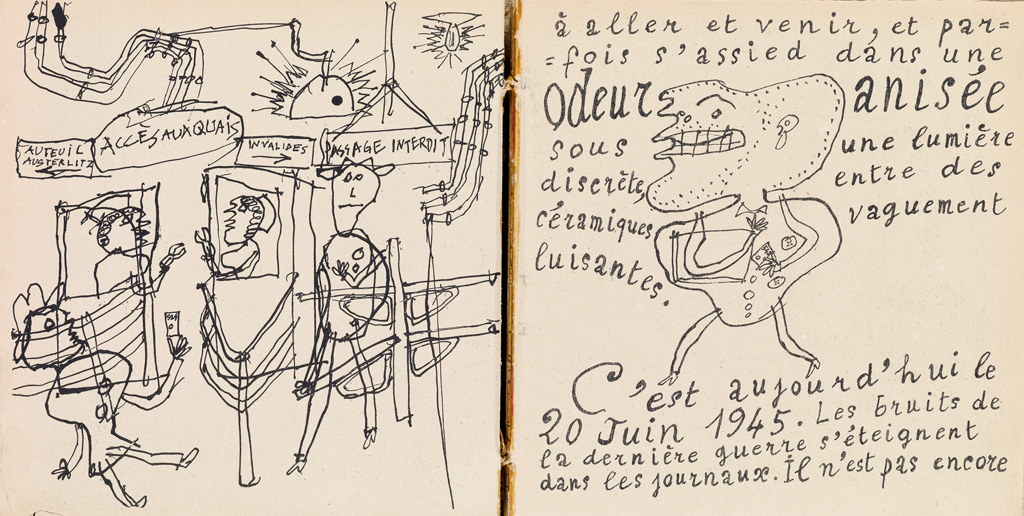 AUTEUIL
AUSTERLITZ
ACCÈS AUX QUAIS
INVALIDES
PASSAGE INTERDIT
à aller et venir, et par=
=fois s'assied dans une
odeur anisée
sous une lumière
discrète, entre des
céramiques vaguement
luisantes.
C'est aujourd'hui le
20 Juin 1945. Les bruits de
la dernière guerre s'éteignent
dans les journaux. Il n'est pas encore